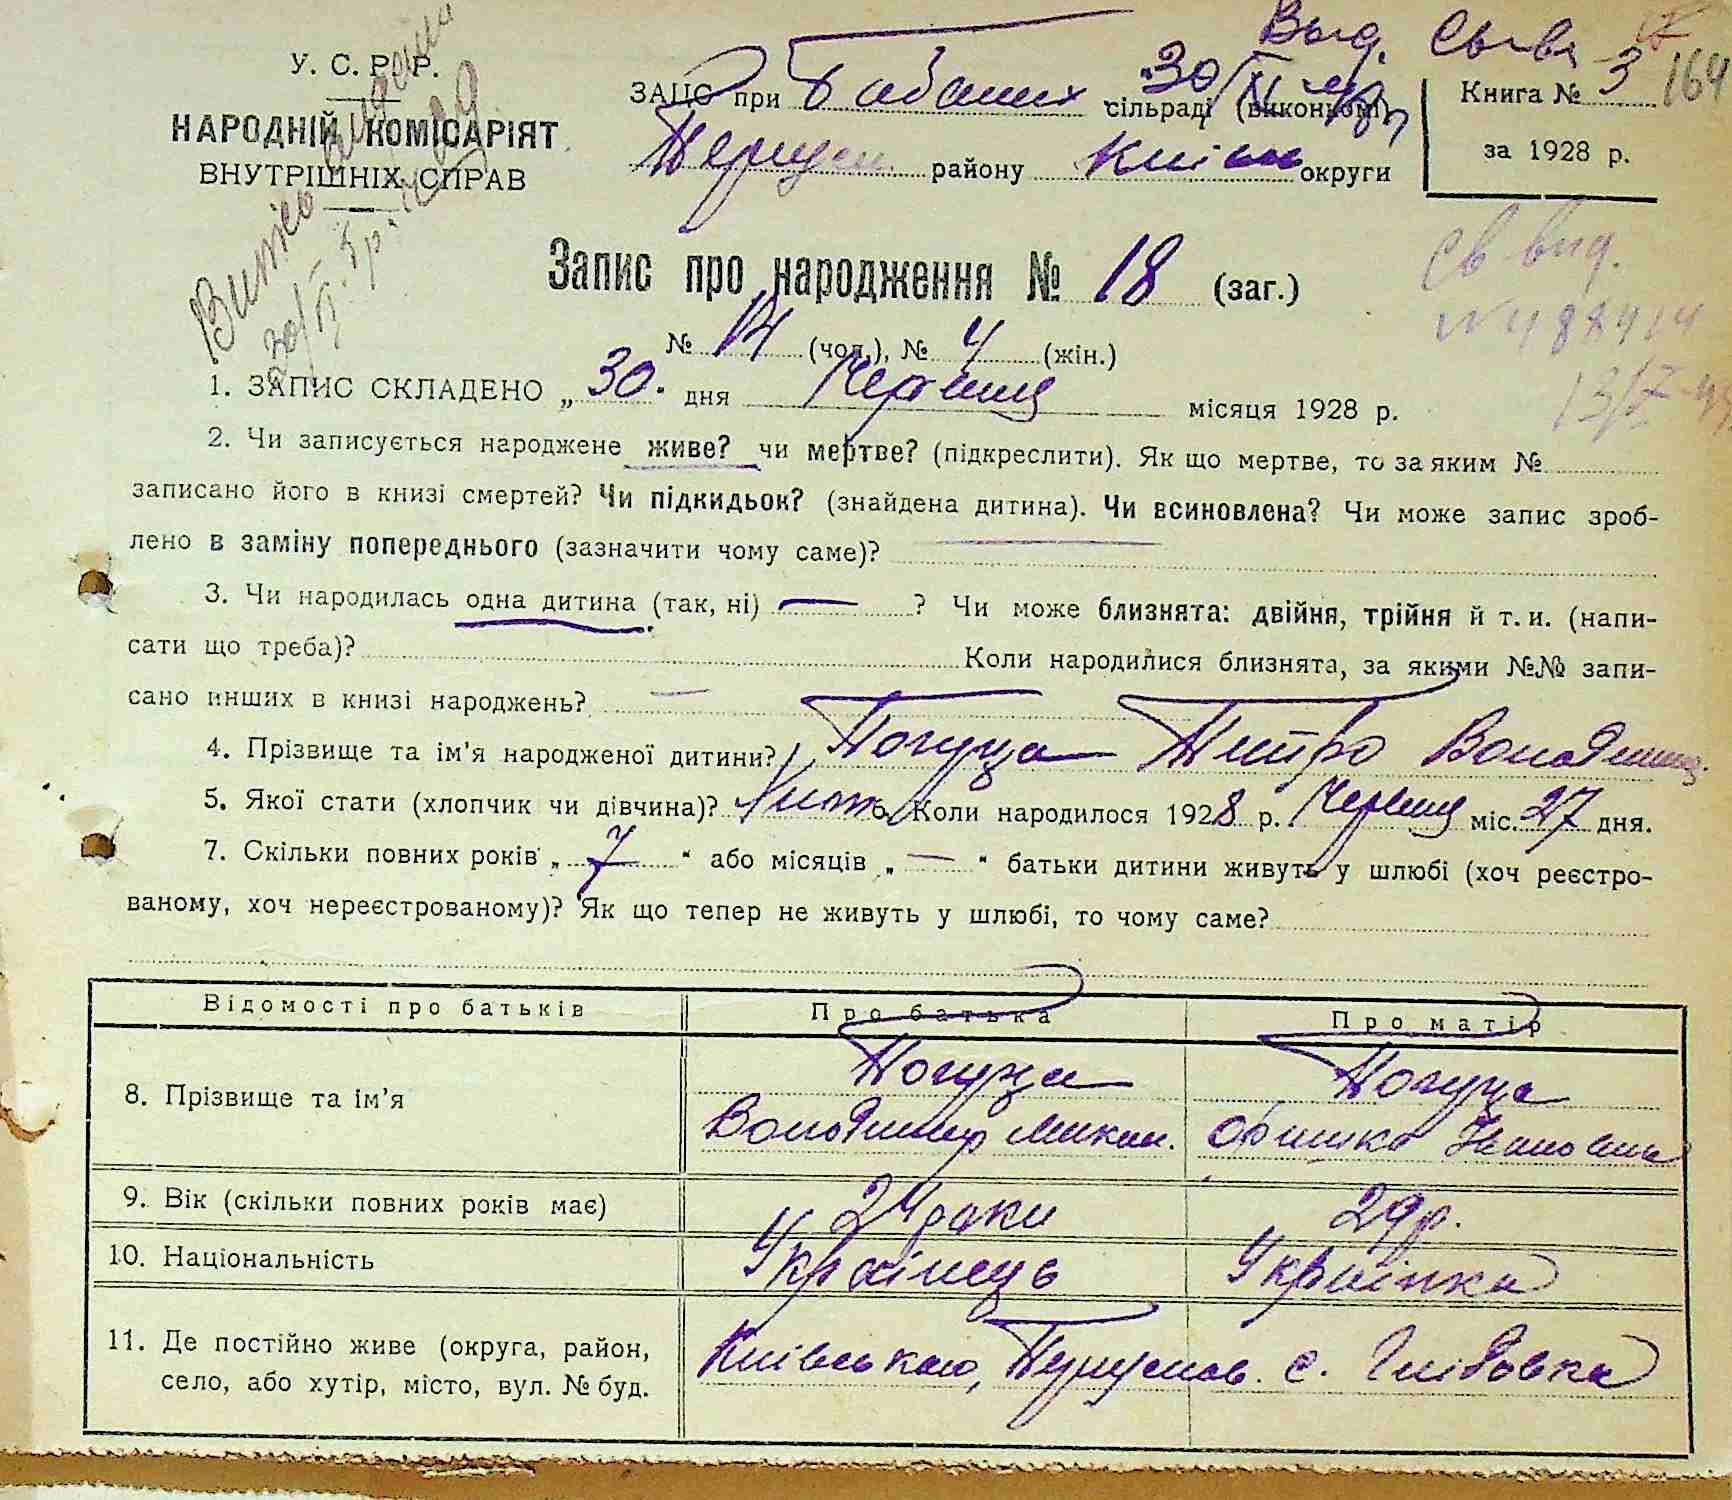 Выд. Св-ва
У. С. Р. Р.
НАРОДНІЙ КОМІСАРІЯТ
ВНУТРІШНІХ СПРАВ
ЗАЦС при сільраді (виконкомі)
району округи
Книга № 3 164
за 1928 р.
Запис про народження № 18 (заг.)
Св выд.
№ (чол.), № 4 (жін.)
1. ЗАПИС СКЛАДЕНО „ 30. дня Червня місяця 1928 р.
2. Чи записується народжене живе? чи мертве? (підкреслити). Як що мертве, то за яким №
записано його в книзі смертей? Чи підкидьок? (знайдена дитина). Чи всиновлена? Чи може запис зроб-
лено в заміну попереднього (зазначити чому саме)?
3. Чи народилась одна дитина (так, ні) — ? Чи може близнята: двійня, трійня й т. и. (напи-
сати що треба)? Коли народилися близнята, за якими №№ запи-
сано инших в книзі народжень? —
4. Прізвище та ім'я народженої дитини? Погуца Петро
5. Якої стати (хлопчик чи дівчина)? 6. Коли народилося 1928 р. Червня міс. 27 дня.
7. Скільки повних років „ 7 “ або місяців „ — “ батьки дитини живуть у шлюбі (хоч реєстро-
ваному, хоч нереєстрованому)? Як що тепер не живуть у шлюбі, то чому саме?
Відомості про батьків Про батька Про матір
8. Прізвище та ім'я Погуца Погуца
Володимир Микол. Івановна
9. Вік (скільки повних років має) 24 роки 29 р.
10. Національність Українець Українка
11. Де постійно живе (округа, район,
село, або хутір, місто, вул. № буд. Київською, с. Глібовка